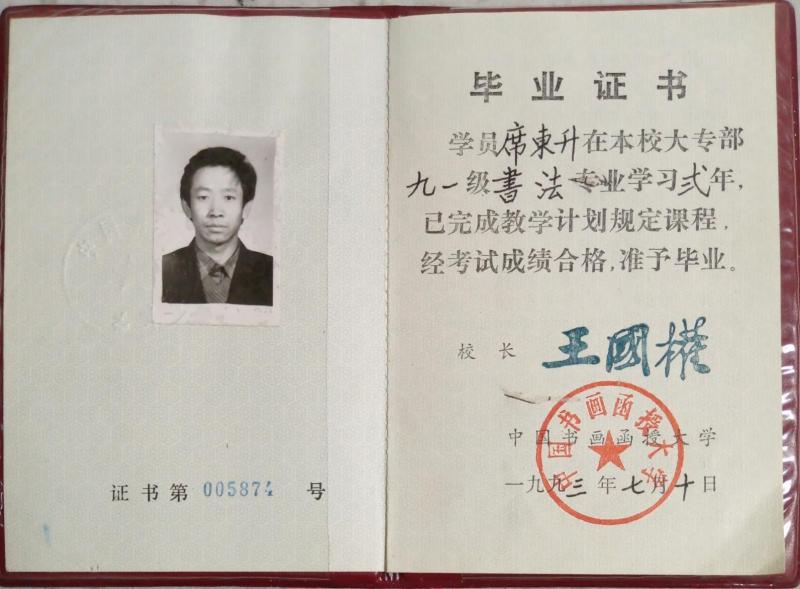 证书第 005874 号
毕业证书
学员席東升在本校大专部
九一级書法专业学习弍年，
已完成教学计划规定课程，
经考试成绩合格，准予毕业。
校长 王國權
中国书画函授大学
中国书画函授大学
一九九三年七月十日